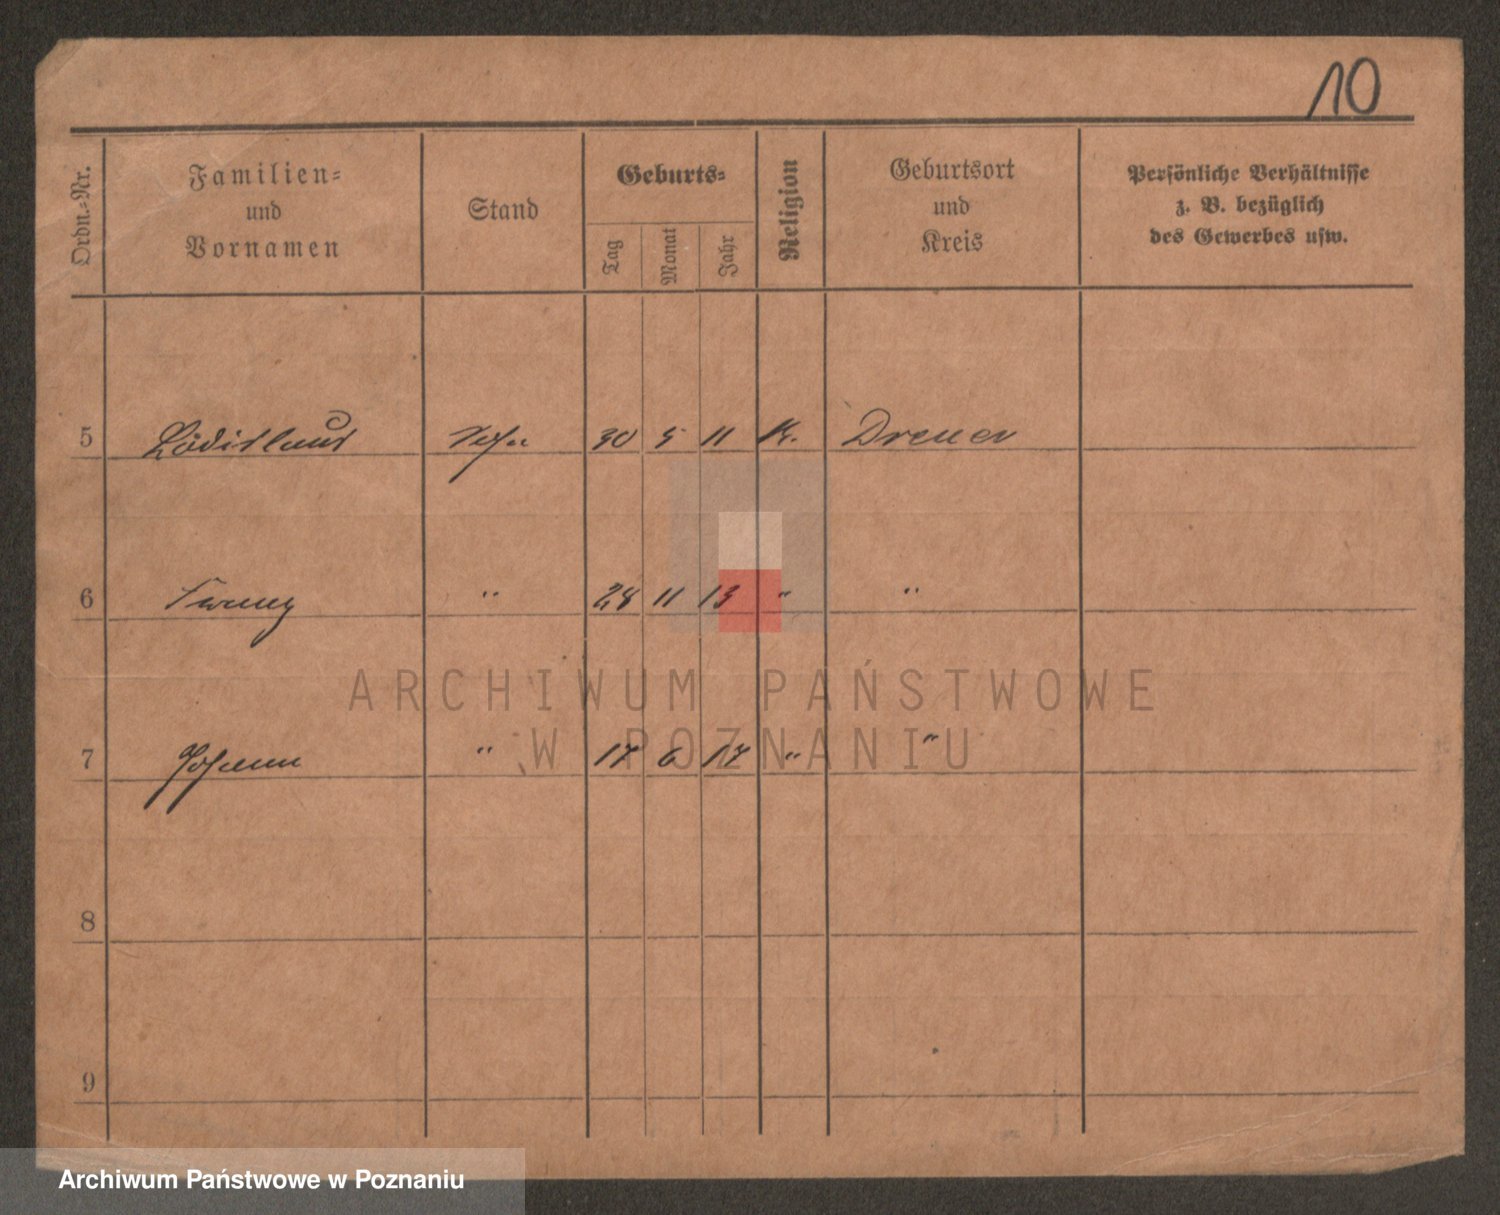 10
Ordn.-Nr.
Familien-
und
Vornamen
Stand
Geburts-
Tag
Monat
Jahr
Religion
Geburtsort
und
Kreis
Persönliche Verhältnisse
z. B. bezüglich
des Gewerbes usw.
5 Ladislaus Sohn 30 5 11 K.
6 Franz " 28 11 13 " "
7 Johann " 17 6 17 " "
8
9
ARCHIWUM PAŃSTWOWE
W POZNANIU
Archiwum Państwowe w Poznaniu